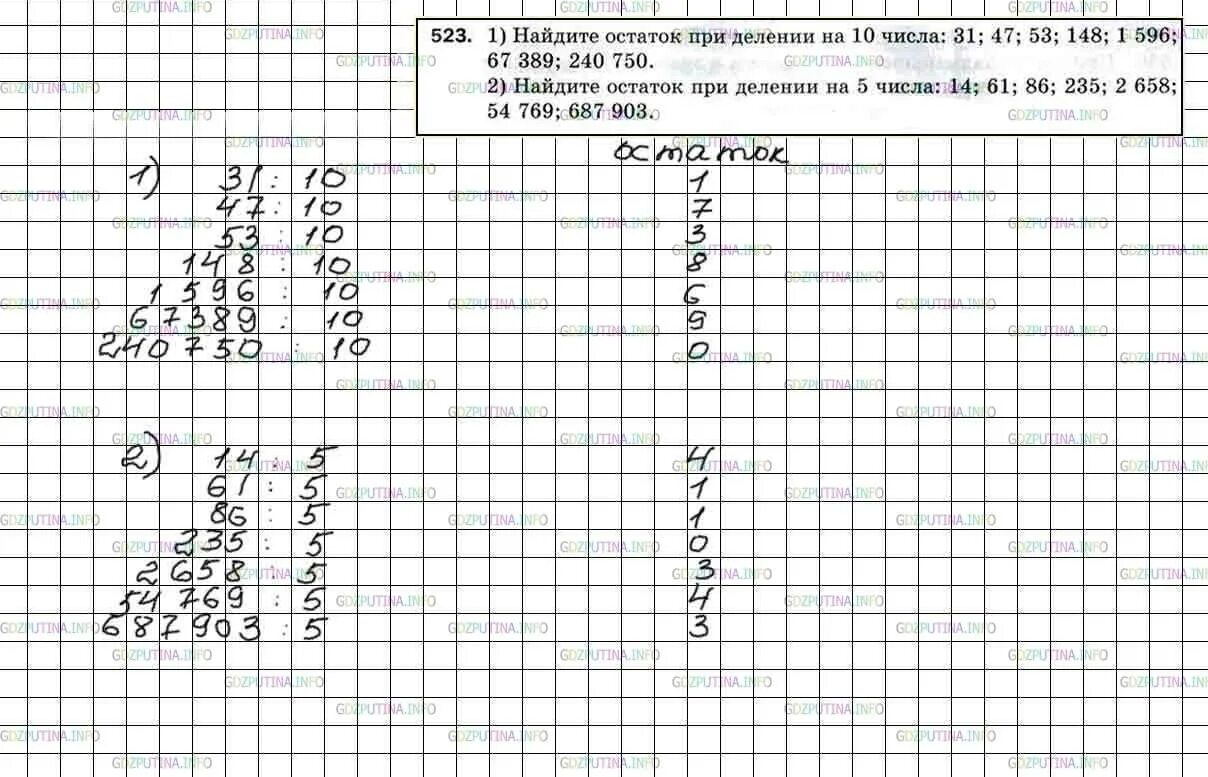 523. 1) Найдите остаток при делении на 10 числа: 31; 47; 53; 148; 1 596;
67 389; 240 750.
2) Найдите остаток при делении на 5 числа: 14; 61; 86; 235; 2 658;
54 769; 687 903.
остаток
1) 31 : 10 1
47 : 10 7
53 : 10 3
148 : 10 8
1 596 : 10 6
67389 : 10 9
240 750 : 10 0
2) 14 : 5 4
61 : 5 1
86 : 5 1
235 : 5 0
2 658 : 5 3
54 769 : 5 4
687 903 : 5 3
GDZPUTINA.INFO